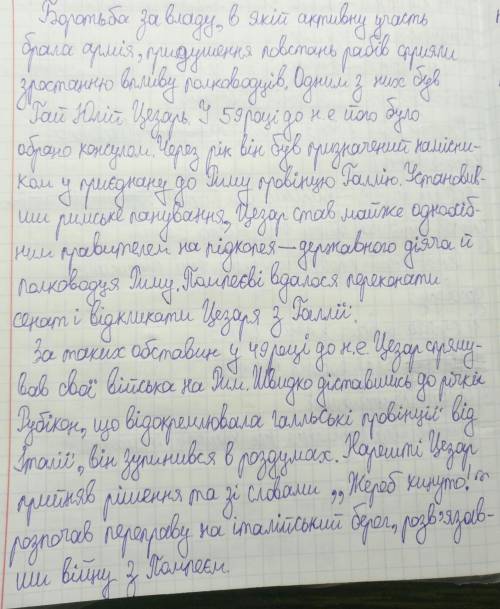 Боротьба за владу, в якій активну участь
брала армія, придушення повстань рабів сприяли
зростанню впливу полководців. Одним з них був
Гай Юлій Цезарь. У 59 році до н.е його було
обрано консулом. Через рік він був призначений намісни-
ком у приєднану до Риму провінцію Галлію. Установив-
ши римське панування, Цезар став майже одноосіб-
ним правителем на підкорея — державного діяча й
полководця Риму. Помпеєві вдалося переконати
сенат і відкликати Цезаря з Галлії.
За таких обставин у 49 році до н.е. Цезар спряму-
вав свої війська на Рим. Швидко діставшись до річки
Рубікон, що відокремлювала галльські провінції від
Італії, він зупинився в роздумах. Нарешті Цезар
прийняв рішення та зі словами „Жереб кинуто!“
розпочав переправу на італійський берег, розв'язав-
ши війну з Помпеєм.